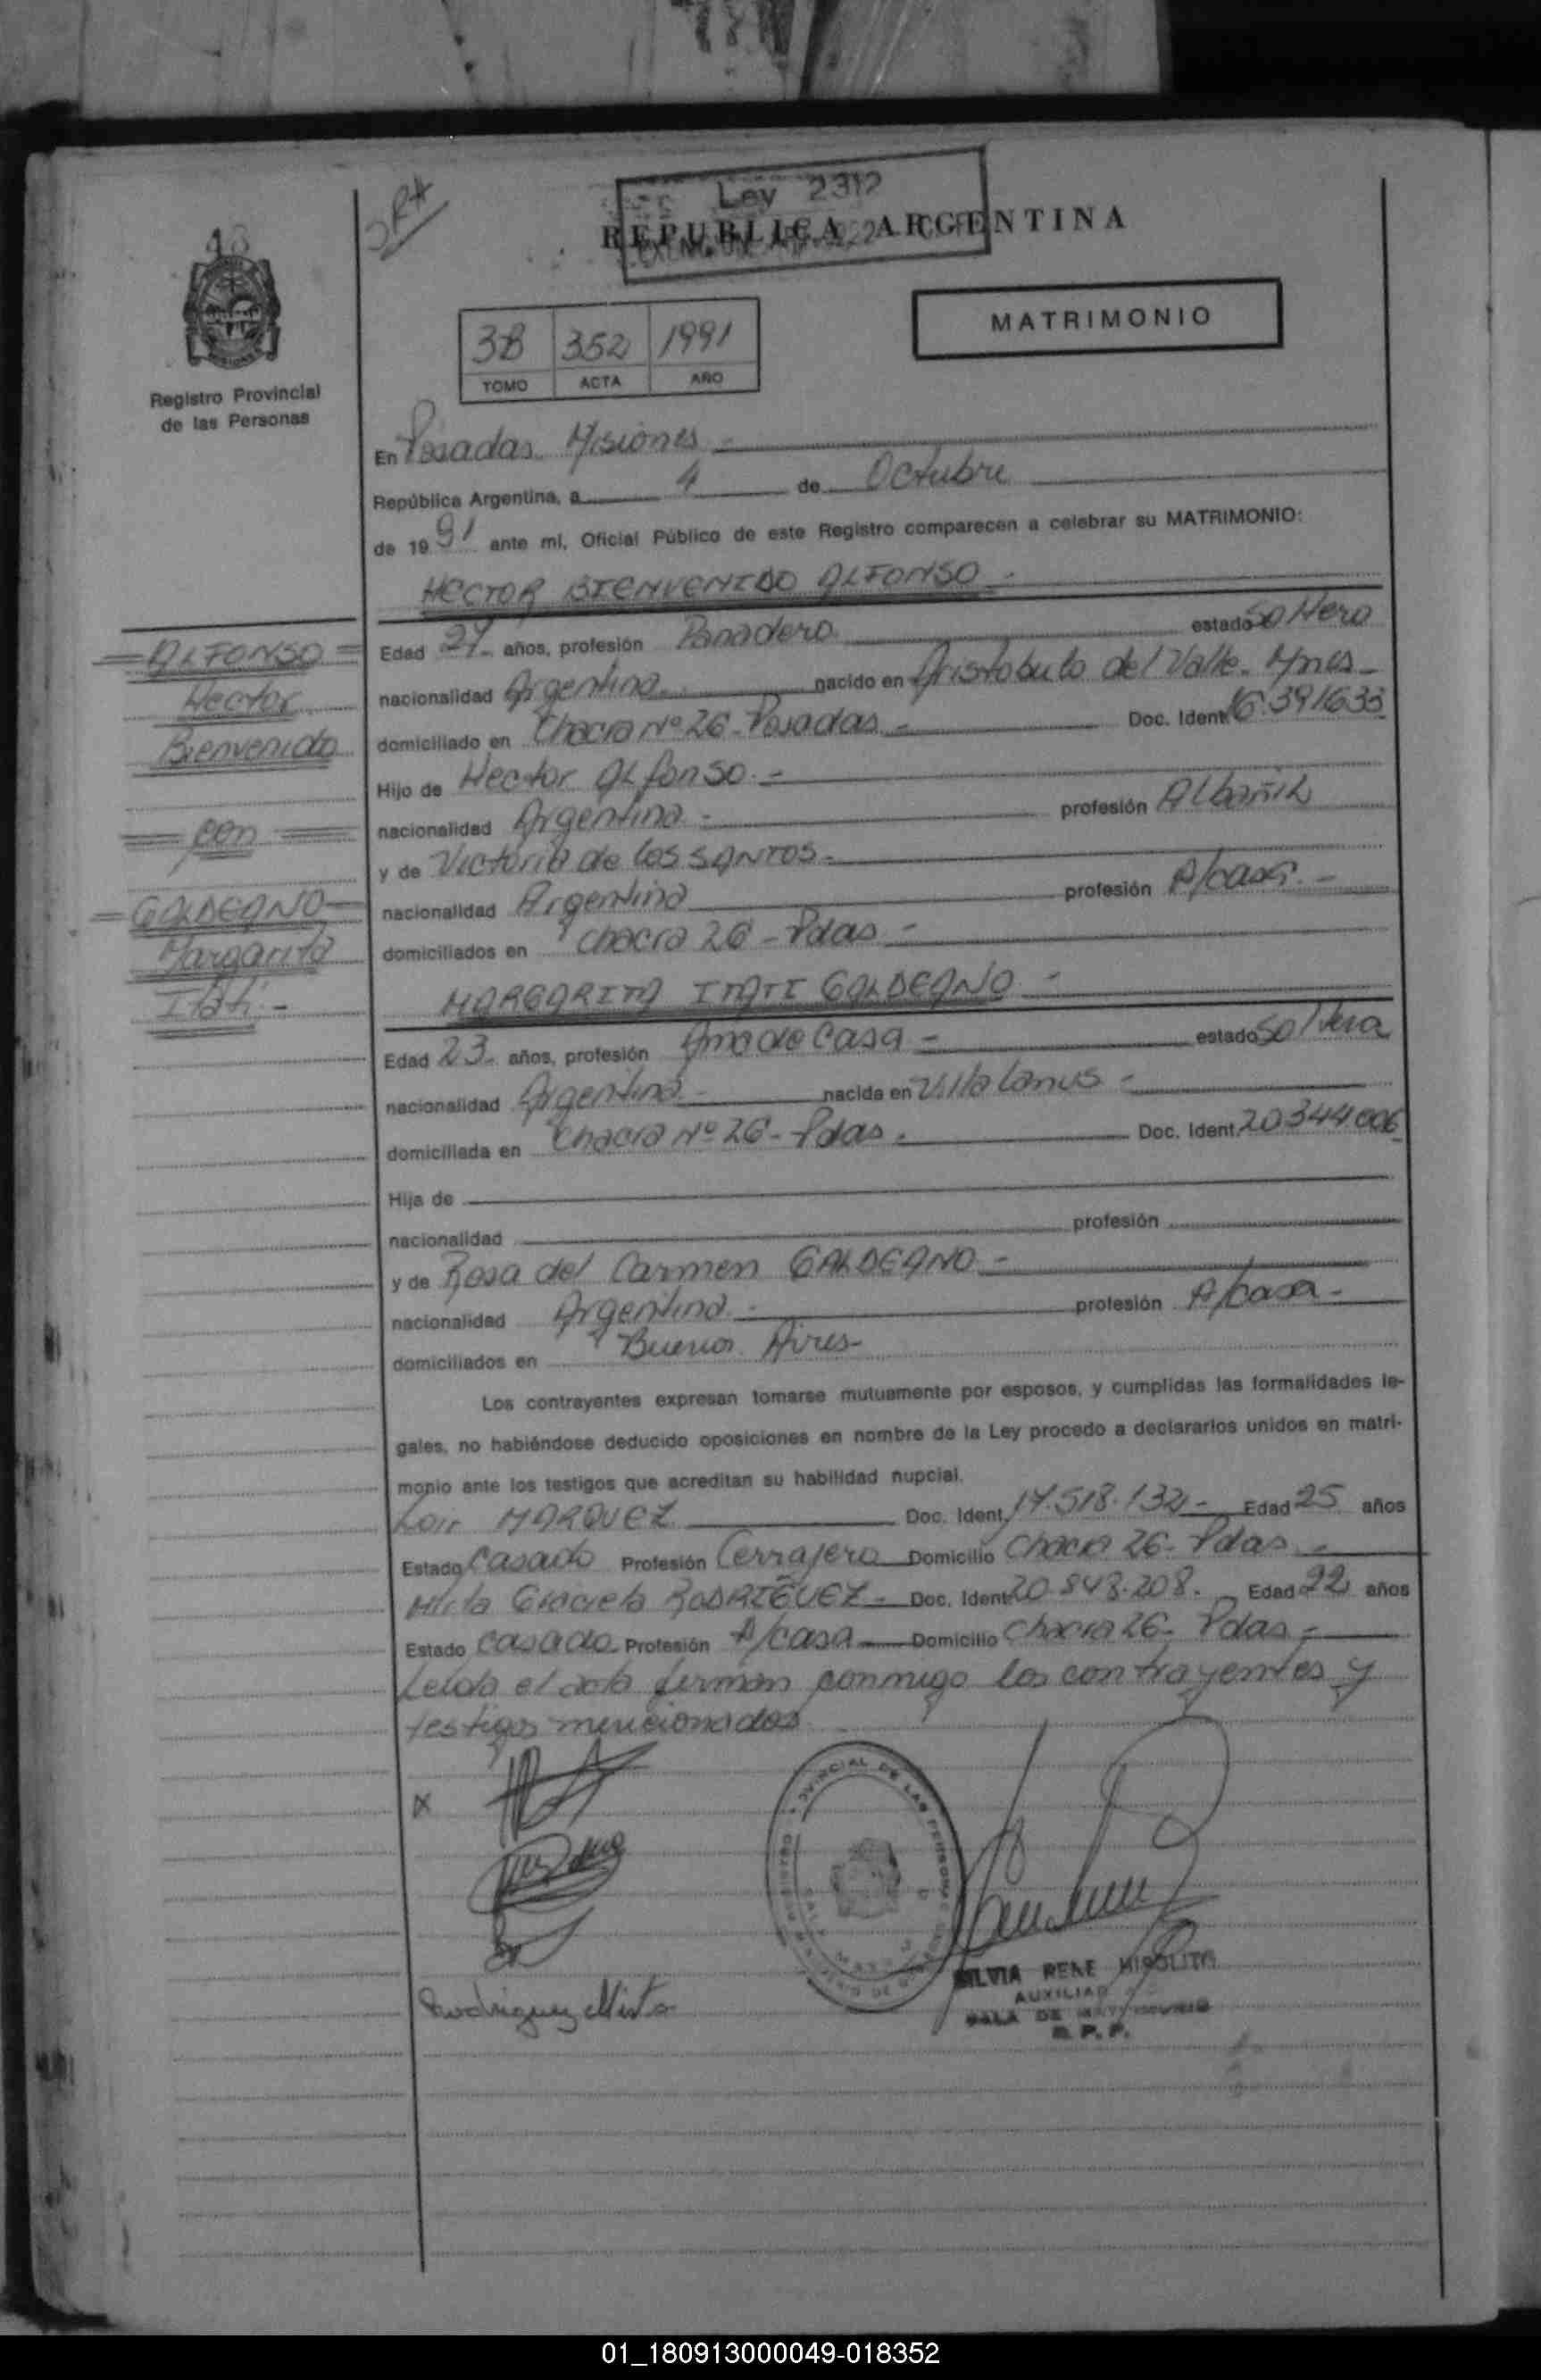 Ley 2312
REPUBLICA ARGENTINA
MATRIMONIO
3B 352 1991
TOMO ACTA AÑO
Registro Provincial
de las Personas
En Posadas Misiones -
República Argentina, a 4 de Octubre
de 1991 ante mí, Oficial Público de este Registro comparecen a celebrar su MATRIMONIO:
HECTOR BIENVENIDO ALFONSO -
ALFONSO
Hector
Bienvenido
con
GALDEANO
Margarita
Itati -
Edad 27 años, profesión Panadero estado Soltero
nacionalidad Argentina nacido en Aristobulo del Valle - Mnes -
domiciliado en Chacra Nº 26 - Posadas - Doc. Ident. 16.391633
Hijo de Hector Alfonso -
nacionalidad Argentina - profesión Albañil
y de Victoria de los SANTOS -
nacionalidad Argentina profesión A/casa -
domiciliados en Chacra 26 - Pdas -
MARGARITA ITATI GALDEANO -
Edad 23 años, profesión Ama de Casa - estado Soltera
nacionalidad Argentina - nacida en Villa Lanus -
domiciliada en Chacra Nº 26 - Pdas. Doc. Ident. 20344006
Hija de
nacionalidad profesión
y de Rosa del Carmen GALDEANO -
nacionalidad Argentina - profesión A/casa -
domiciliados en Buenos Aires -
Los contrayentes expresan tomarse mutuamente por esposos, y cumplidas las formalidades le-
gales, no habiéndose deducido oposiciones en nombre de la Ley procedo a declararlos unidos en matri-
monio ante los testigos que acreditan su habilidad nupcial.
MARQUEZ Doc. Ident. 17.518.132 - Edad 25 años
Estado Casado Profesión Cerrajero Domicilio Chacra 26 - Pdas -
Mirta Graciela RODRIGUEZ - Doc. Ident. 20.848.208. Edad 22 años
Estado Casado Profesión A/casa Domicilio Chacra 26 - Pdas -
Leída el acta firman conmigo los contrayentes y
testigos mencionados
Rodriguez Mirta
SILVIA RENE HIPOLITO
AUXILIAR
SALA DE MATRIMONIO
R. P. P.
01_180913000049-018352